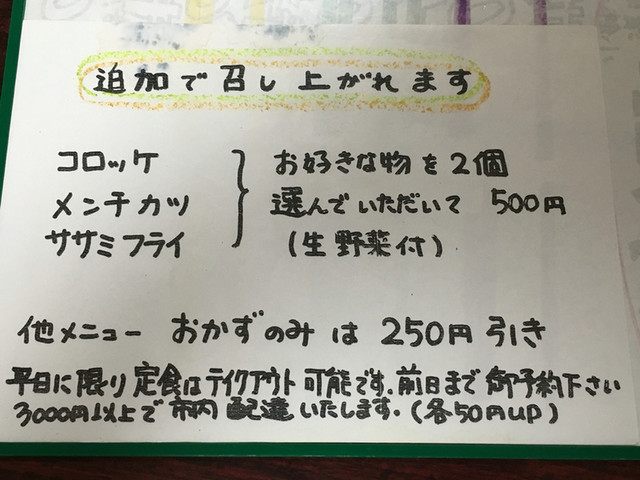 追加で召し上がれます
コロッケ
メンチカツ
ササミフライ
お好きな物を2個
選んでいただいて 500円
(生野菜付)
他メニュー おかずのみ は 250円引き
平日に限り定食はテイクアウト可能です。前日まで御予約下さい
3000円以上で市内配達いたします。(各50円UP)